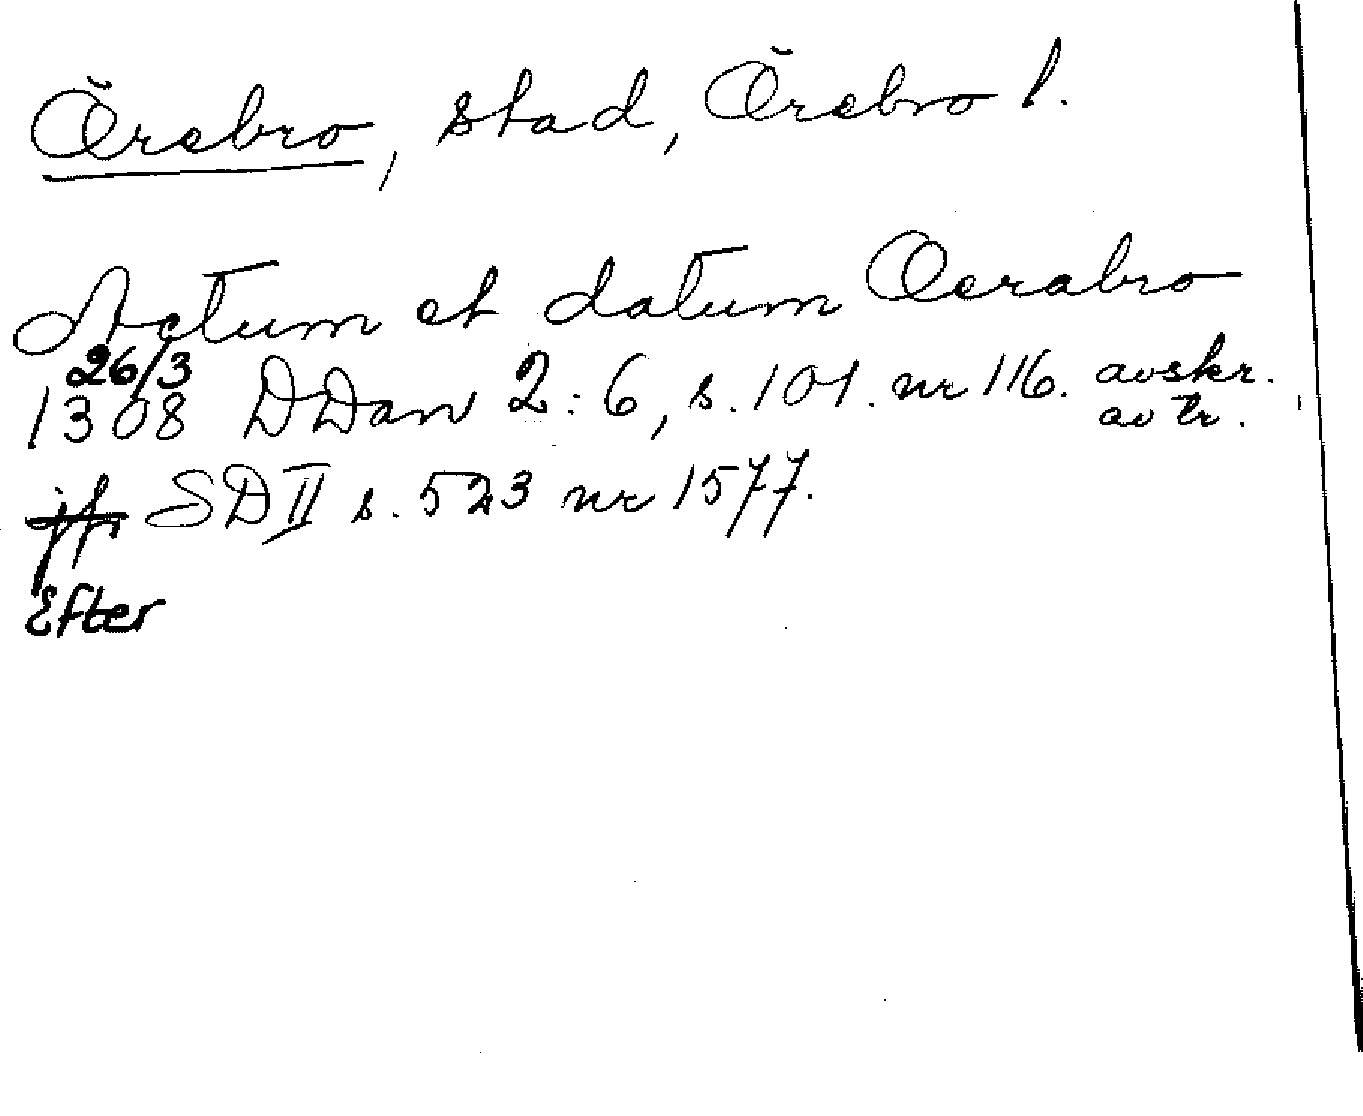 Örebro, stad, Örebro l.
Actum et datum Oerabro
26/3
1308 DDan 2:6, s. 101. nr 116. avskr.
av tr.
jfr SD II s. 523 nr 1577.
Efter